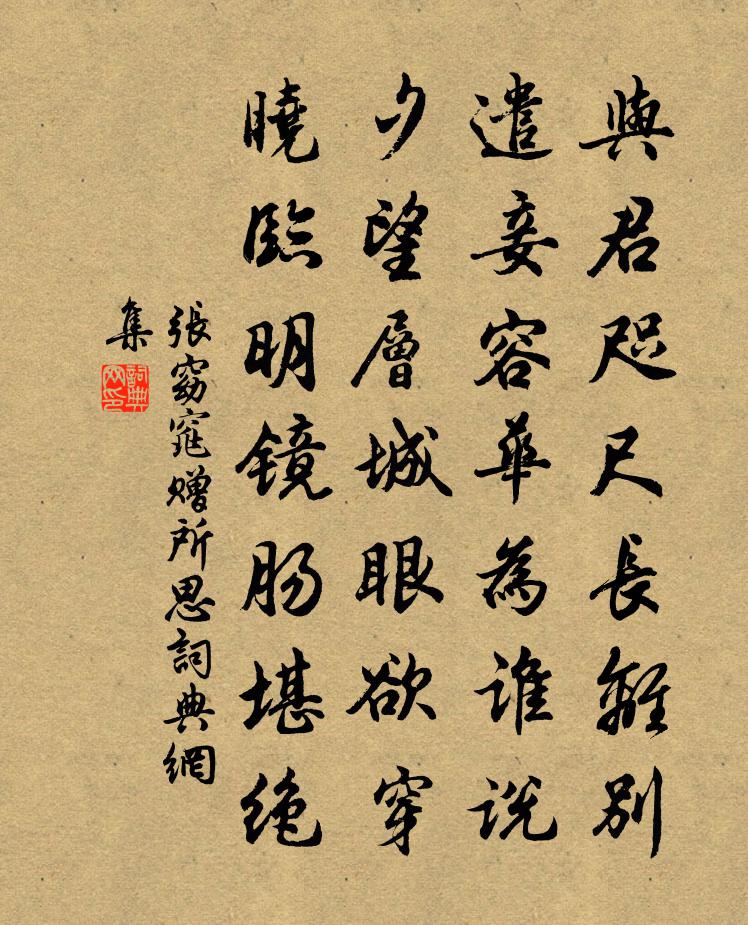 與君咫尺長離別
遣妾容華為誰說
夕望層城眼欲穿
曉臨明鏡肠堪絶
張窈窕贈所思詞典網
集
詞典網印